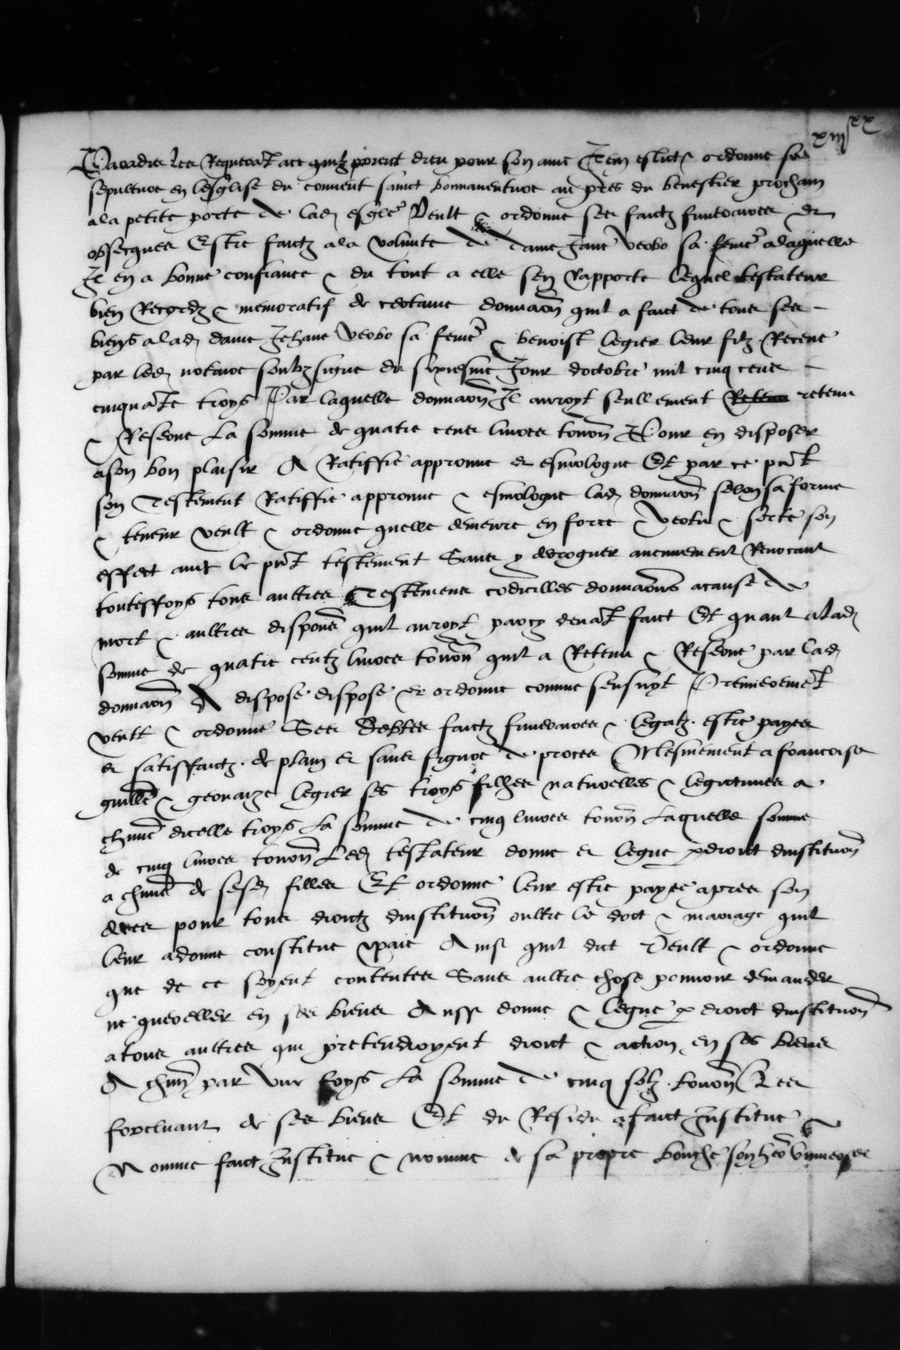 xiiii xx
Paradis les Requerat affin quilz prient dieu pour son ame Item eslict & ordonne sa
sepulture en lesglise du convent sainct bonnaventure au pres du benestier prochain
a la petite porte de lad esglē Veult & ordonne ses fraictz funeraires et
obsecques Estre faictz a la volunte de dame Jane verbo sa femē a laquelle
Il en a bonne confiance & du tout a elle sen Rapporte lequel testateur
bien Recordz & memoratif de certaine donnaōn quil a faict de tous ses
biens a lad dame Jehane verbo sa femē & benoist legier leur filz Receue
par led notaire soubzsigne du sixiesme Jour doctobre mil cinq cens
cinquāte troys Par laquelle donnaōn Il auroyt seullement retenu
& Reserve La somme de quatre cens livres tournō Pour en disposer
a son bon plaisir A Ratiffie approuve et esmologue Et par ce pnt
son Testement Ratiffie approuve & esmologue lad donnaōn selon sa forme
& teneur veult & ordonne quelle demeure en force & vertu & sorte son
effect avec le pnt testement Sans y desroguer aucunement Revocant
touteffoys tous aultres Testemens codicilles donnaōns a cause de
mort & aultres disponē quil auroyt par cy devāt faict Et quant a lad
somme de quatre centz livres tournō quil a Retenu & Reserve par lad
donnaōn A dispose dispose et ordonne comme sensuyt Premieremēt
veult & ordonne Ses debtes fraictz funeraires & legatz estre payes
et satisffaictz de plain et sans figure de proces Mesmement a francoise
guillē & gevraize legier ses troys filhes naturelles & legitimes a
chunē dicelle troys La somme de cinq livres tournō Laquelle somme
de cinq livres tournō Led testateur donne et legue p droict dinstituōn
a chunē de sesd filles Et ordonne leur estre payee apres son
deces pour tous droictz dinstituōn oultre le dot & mariage quil
leur a donne constitue & paie Ainsi quil dict Veult & ordonne
que de ce soyent contentes Sans aultre chose pouvoir demander
ne quereller en ses biens Aussi donne & legue p droict dinstituōn
a tous aultres qui pretendroyent droict & action en ses biens
A chun par une foys La somme de cinq solz tournō Les
forcluant de ses biens Et du Residu a faict Institue &
Nomme faict Institue & nomme de sa propre bouche son herō unneverse